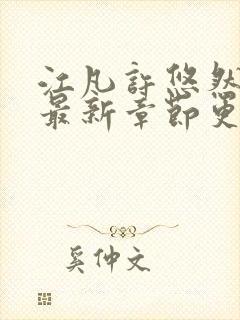 江凡許悠然
最新章節更
奚仲文